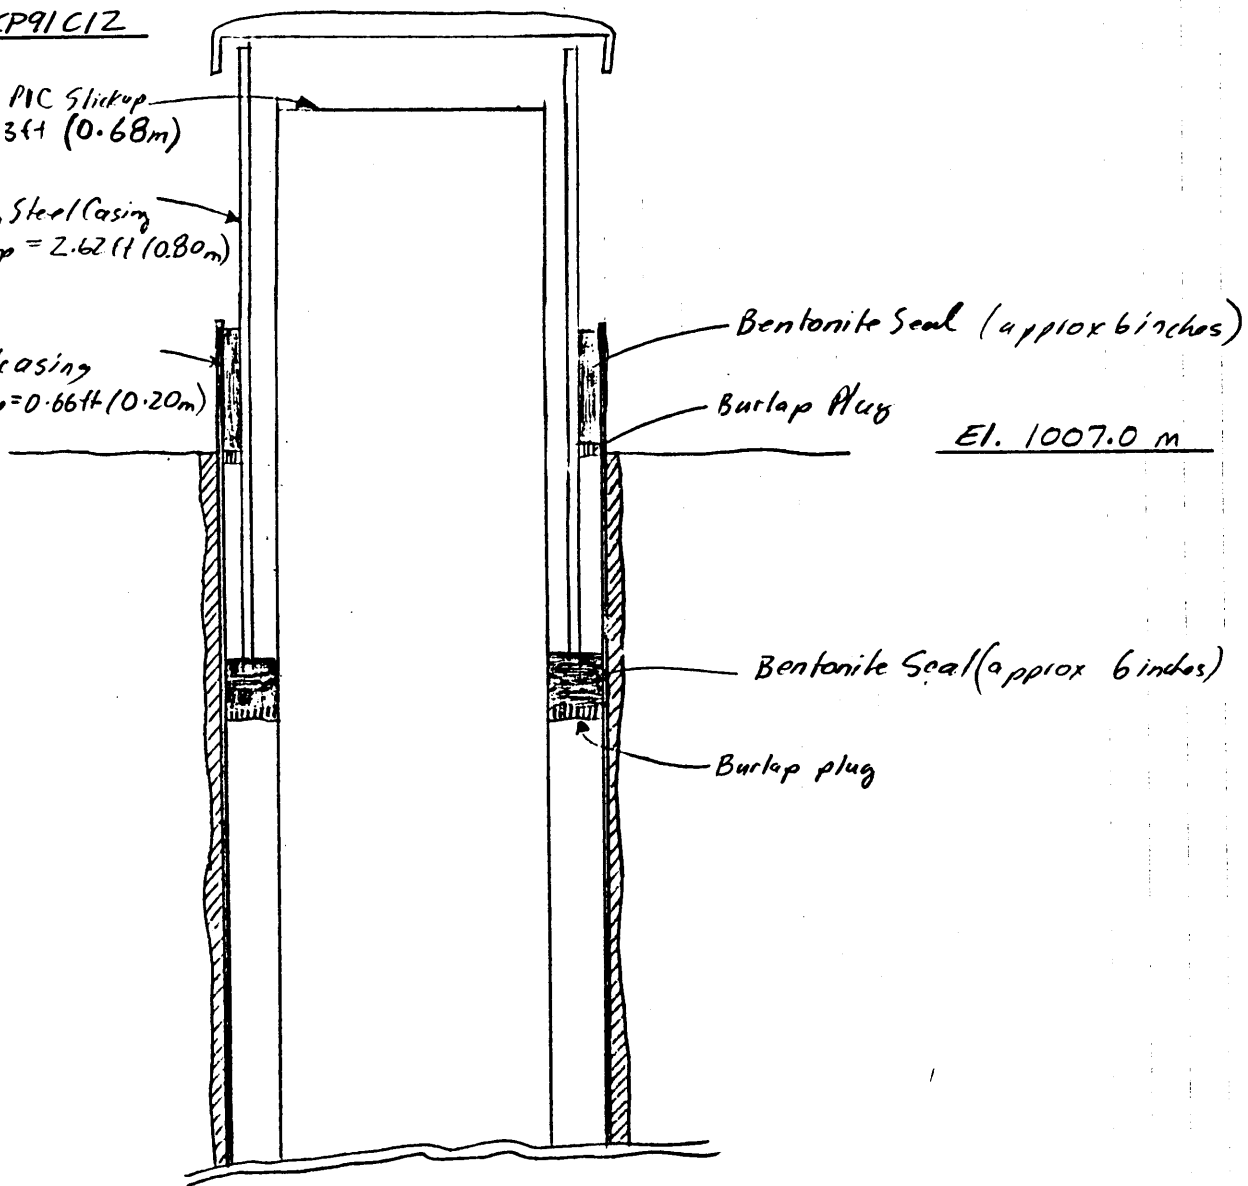 KP91C12
PIC Stickup
3ft (0.68m)
Steel Casing
= 2.62ft (0.80m)
casing
=0.66ft (0.20m)
Bentonite Seal (approx 6 inches)
Burlap Plug
El. 1007.0 m
Bentonite Seal (approx 6 inches)
Burlap plug